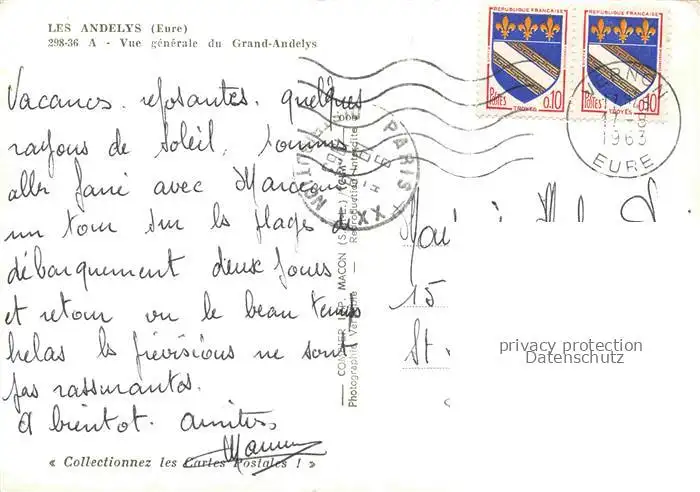 LES ANDELYS (Eure)
298-36 A - Vue générale du Grand-Andelys
REPUBLIQUE FRANÇAISE
REPUBLIQUE FRANÇAISE
POSTES 0,10
TROYES
POSTES 0,10
TROYES
VERNON
17
1963
EURE
PARIS
XX
DISTRIBUTION
Vacances reposantes. quelques
rayons de soleil, sommes
aller faire avec Marceau
un tour sur la plage de
débarquement deux jours
et retour vu le beau temps
helas les prévisions ne sont
pas rassurantes.
A bientot. amitiés
COMBIER IMP. MACON (S.-&-L.)
Photographie Véritable - Reproduction Interdite
15
St
privacy protection
Datenschutz
« Collectionnez les Cartes Postales ! »